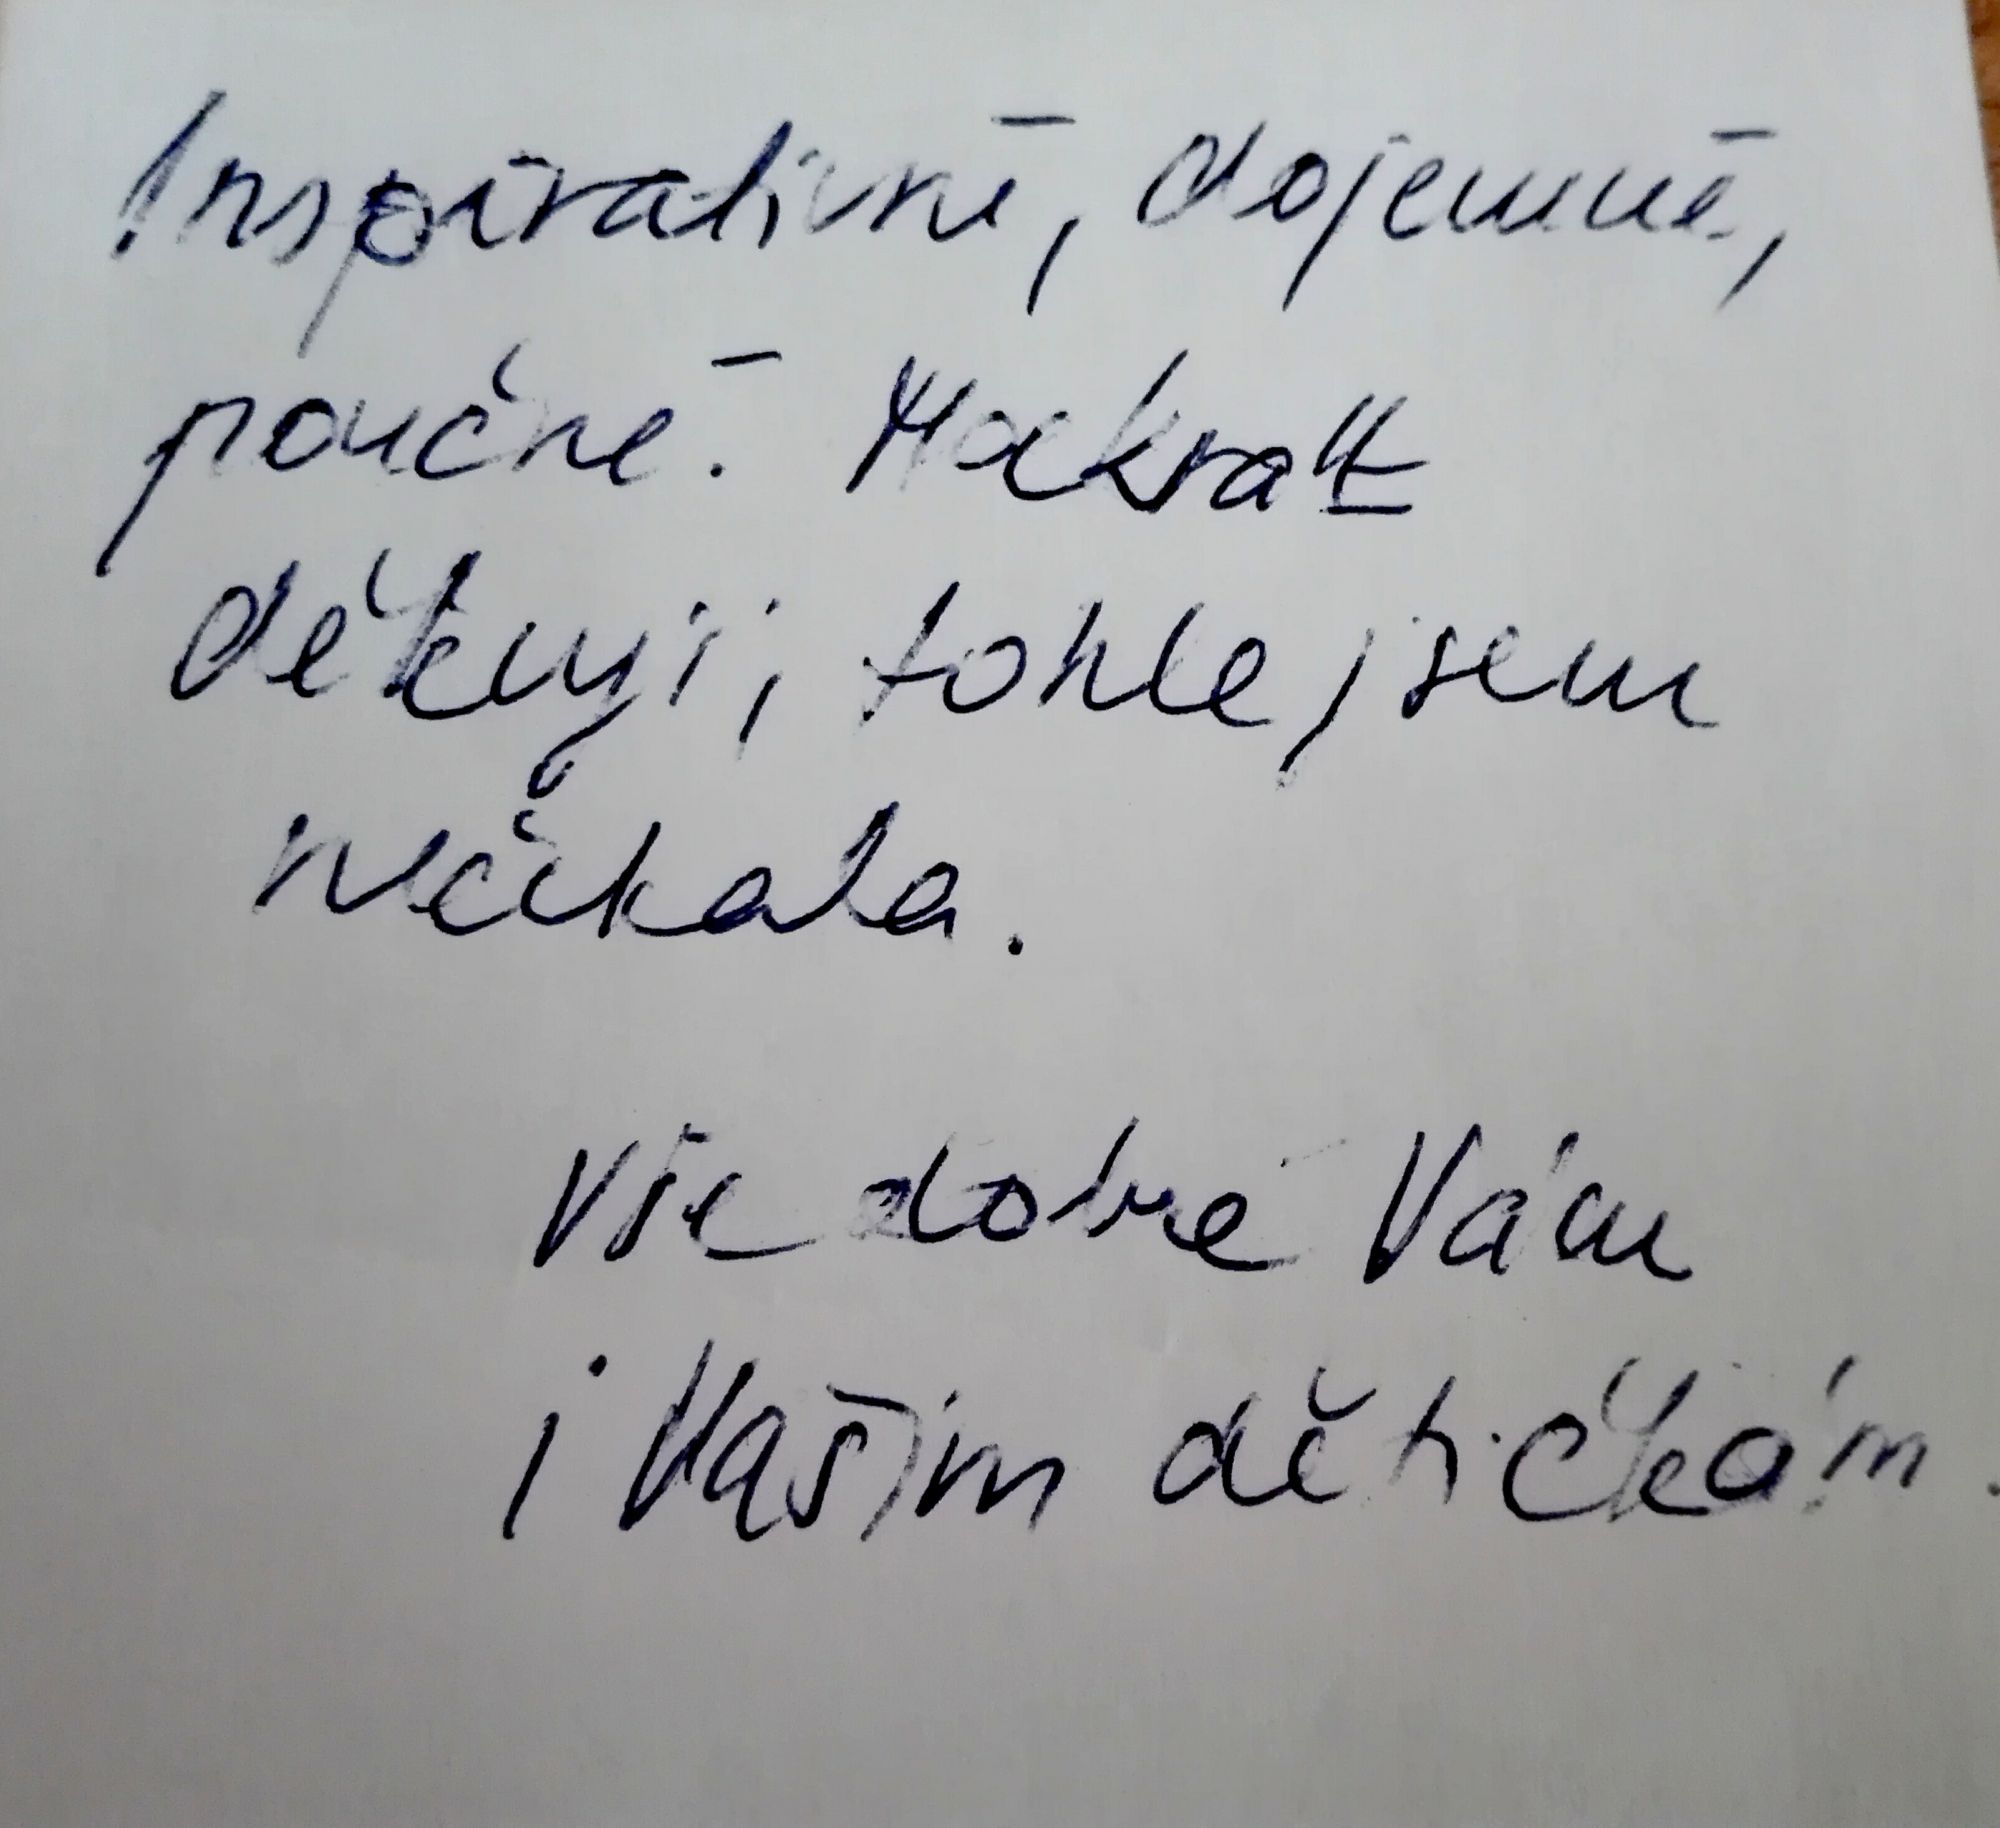 Inspirativné, dojemné,
poučné. Mockrát
děkuji, tohle jsem
nečekala.
Vše dobré Vám
i Vašim dětičkám.